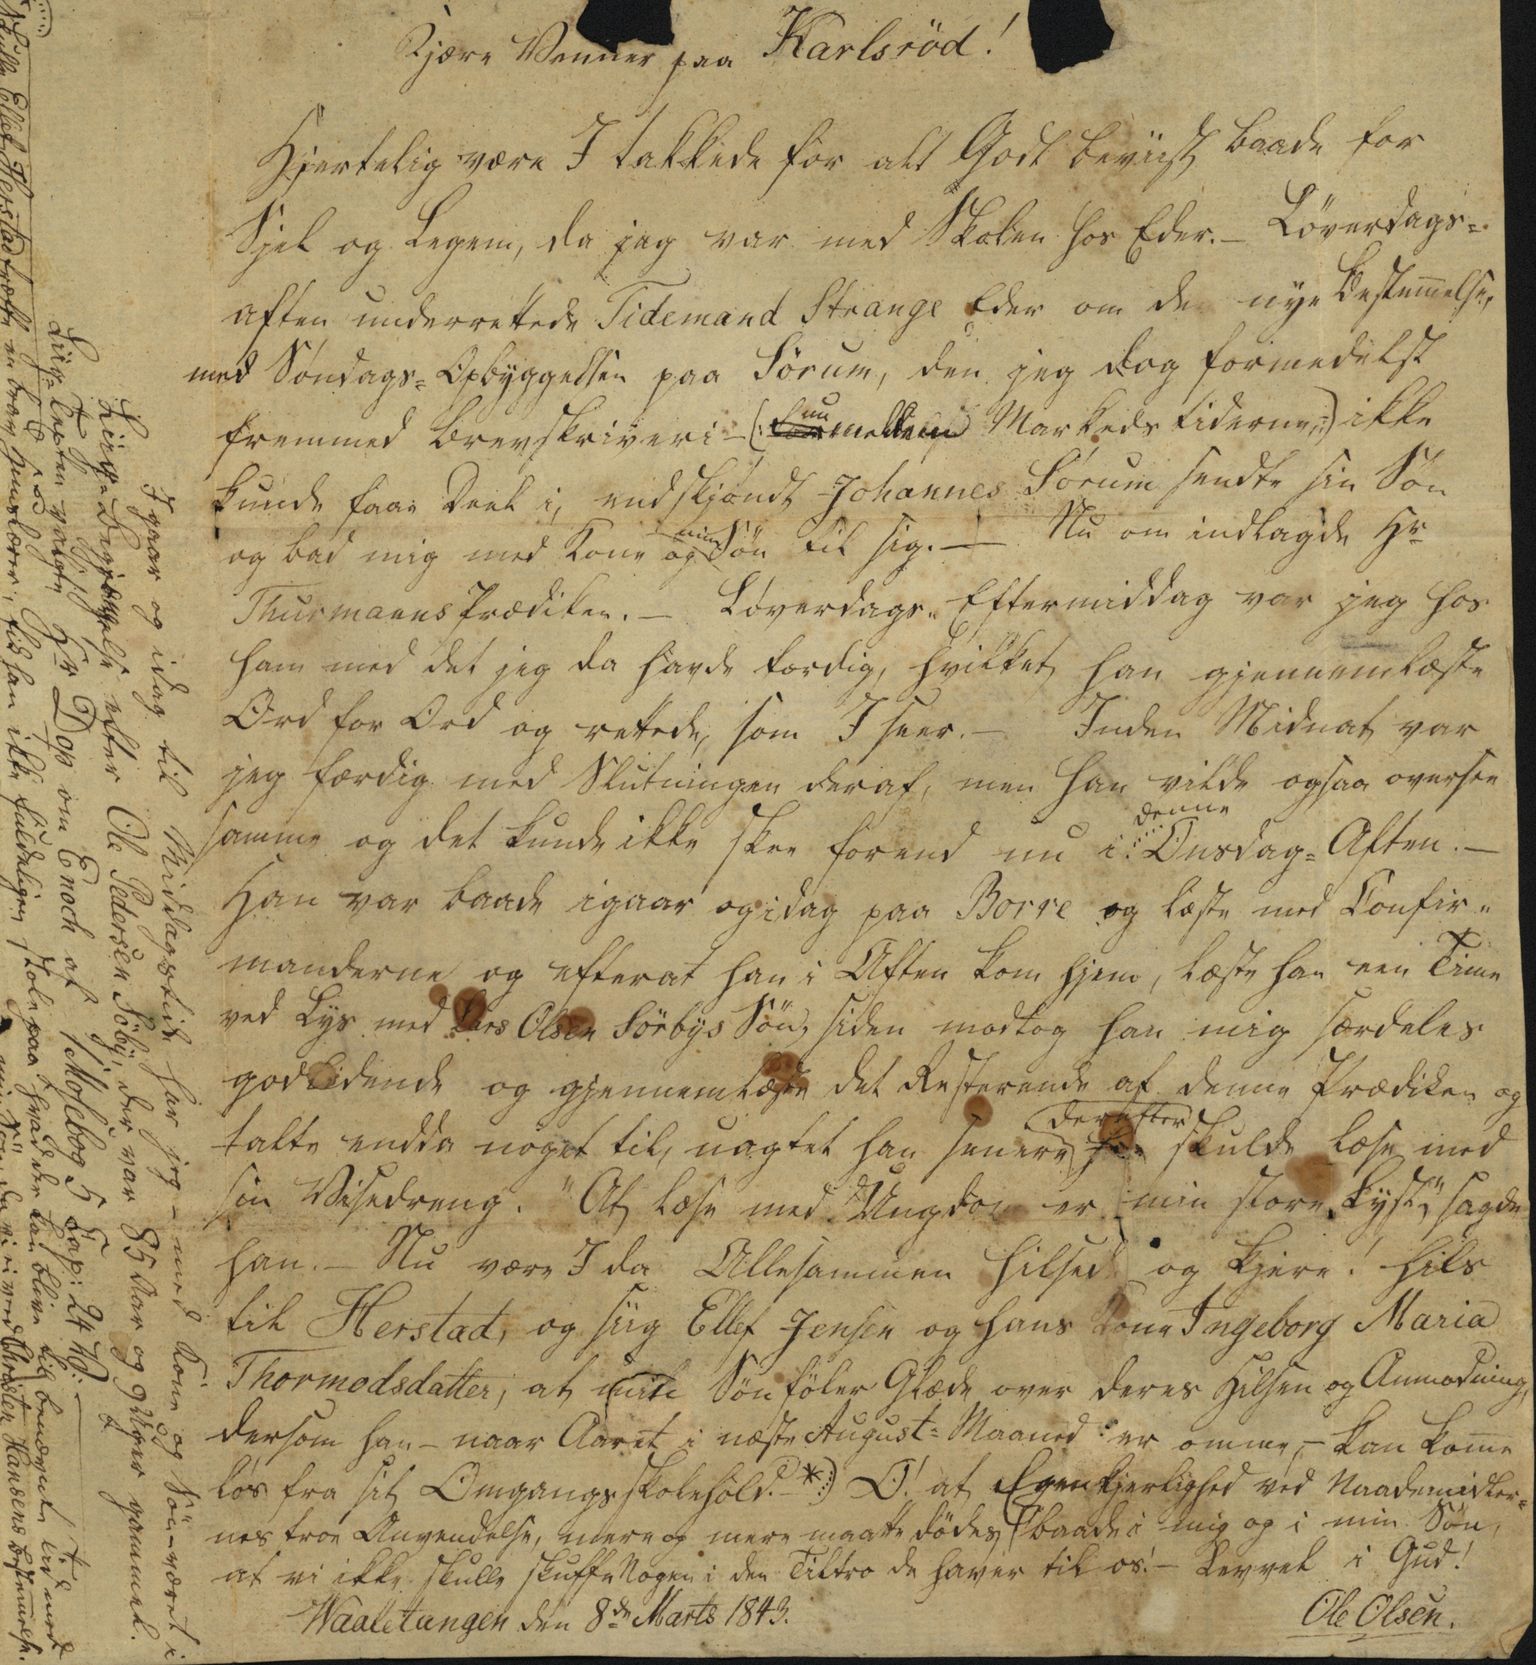 Kjære Venner paa Karlsröd!
Hjertelig være I takkede for alt Godt beviist baade for
Sjel og Legem, da jeg var med Skolen hos Eder. – Löverdags-
aften underrettede Tidemand Strange Eder om de nye Bestemmelse,
med Söndags-Opbyggelsen paa Sörum, den jeg dog formedelst
fremmed Brevskriveri – (: nu mellem Markedstiderne :) ikke
kunde faae Deel i, endskjöndt Johannes Sörum sendte sin Sön
og bad mig med Kone og min Sön til sig. – Nu om indlagde Hr
Thurmanns Prædiken. – Löverdags-Eftermiddag var jeg hos
ham med det jeg da havde færdig, hvilket han gjennemlæste
Ord for Ord og rettede, som I seer. – Inden Midnat var
jeg færdig med Slutningen deraf, men han vilde ogsaa oversee
samme og det kunde ikke skee förend nu i denne Onsdag-Aften. –
Han var baade igaar og idag paa Borre og læste med Confir-
manderne og efterat han i Aften kom hjem, læste han een Time
ved Lys med Lars Olsen Sörbys Sön, siden modtog han mig særdeles
godlidende og gjennemlæste det Resterende af denne Prædiken og
talte endda noget til, uagtet han senere derefter skulde læse med
sin Visedreng. "At læse med Ungdom er min store Lyst," sagde
han. – Nu være I da Allesammen hilsed og kjere! hils
til Herstad, og siig Ellef Jensen og hans Kone Ingeborg Maria
Thormodsdatter, at min Sön föler Glæde over deres Hilsen og Anmodning,
dersom han – naar Aaret i næste August-Maaned er omme, – kan komme
lös fra sit Omgangsskolehold. *) O! at Egenkjerlighed ved Naademidler-
nes troe Anvendelse, mere og mere maatte dödes, baade i mig og i min Sön,
at vi ikke skulle skuffe Nogen i den Tiltro de haver til os! – Levvel i Gud!
Waaletangen den 8de Marts 1843.
Ole Olsen.
Igaar og idag til Middagstid har jeg – med Kone og Sön – været i
Liig-Begjængelse efter Ole Pedersen Söby, der var 85 Aar og 9 Uger gammel.
Liig-Texten valgte Hr Dop om Enoch af 1 Mosebog 5 Cap: 24 V. –